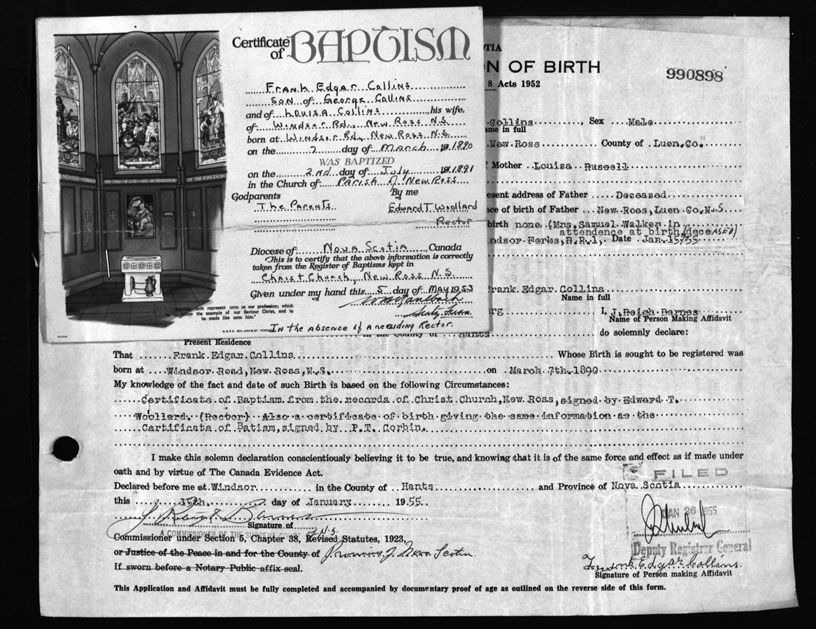 Certificate of BAPTISM
Frank Edgar Collins
Son of George Collins
and of Louisa Collins his wife,
of Windsor Rd., New Ross N.S.
born at Windsor Rd, New Ross N.S.
on the 7 day of March 1890
WAS BAPTIZED
on the 2nd day of July 1891
in the Church of Parish of New Ross
Godparents By me
The Parents Edward T. Woollard
Rector
Diocese of Nova Scotia Canada
This is to certify that the above information is correctly
taken from the Register of Baptisms kept in
Christ Church, New Ross N.S.
Given under my hand this 5 day of May 1953
In the absence of a residing Rector.
OTIA
ON OF BIRTH
990898
8 Acts 1952
Collins, Sex Male
ame in full
New Ross County of Luen.Co.
Mother Louisa Russell
esent address of Father Deceased
ce of birth of Father New Ross, Luen Co, N.S
birth none (Mrs. Samuel Walker in
attendence at birth (deceased)
ndsor Forks, R.R.1, Date Jan.15/55
Frank Edgar Collins
Name in full
I, J. Reich Barnes
Name of Person Making Affidavit
Hants do solemnly declare:
Present Residence
That Frank Edgar Collins Whose Birth is sought to be registered was
born at Windsor Road, New Ross, N.S. on March 7th. 1890
My knowledge of the fact and date of such Birth is based on the following Circumstances:
Certificate of Baptism from the records of Christ Church, New Ross, signed by Edward T.
Woollard. (Rector) Also a certificate of birth giving the same information as the
Certificate of Batism, signed by P.T. Corbin.
I make this solemn declaration conscientiously believing it to be true, and knowing that it is of the same force and effect as if made under
oath and by virtue of The Canada Evidence Act.
FILED
Declared before me at Windsor in the County of Hants and Province of Nova Scotia
this 15th day of January 1955.
JAN 26 1955
Signature of
Commissioner under Section 5, Chapter 38, Revised Statutes, 1923,
or Justice of the Peace in and for the County of Province of Nova Scotia
Deputy Registrar General
If sworn before a Notary Public affix seal.
Frank Edgar Collins
Signature of Person making Affidavit
This Application and Affidavit must be fully completed and accompanied by documentary proof of age as outlined on the reverse side of this form.